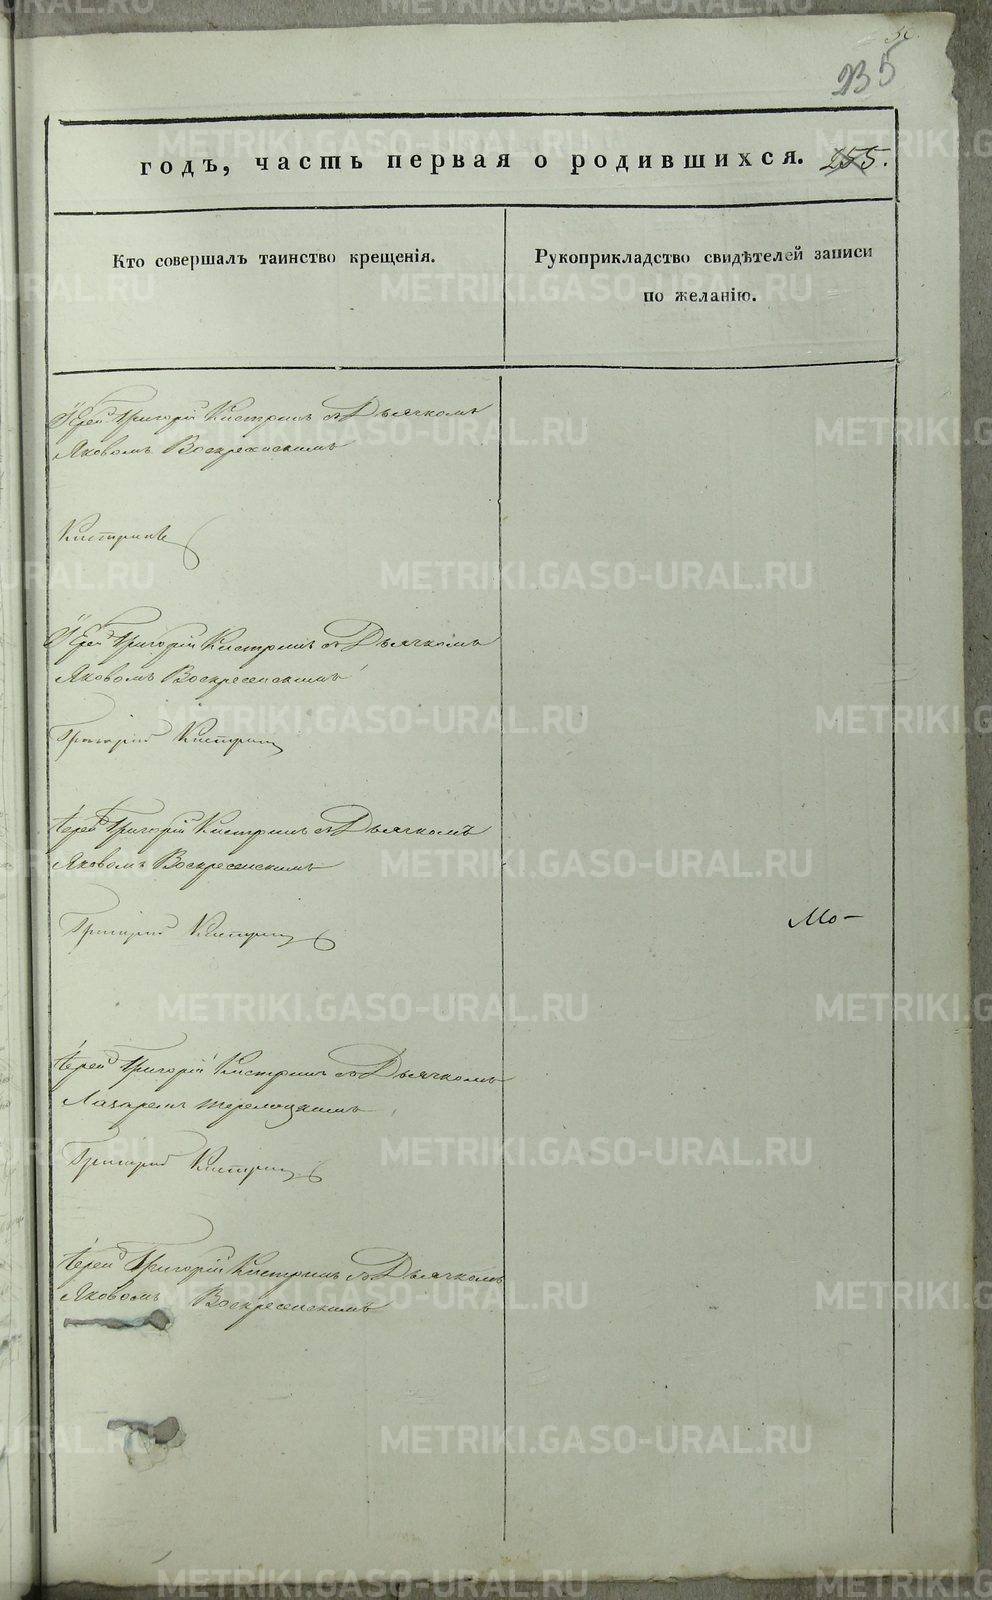 235
годъ, часть первая о родившихся. 255.
Кто совершалъ таинство крещенія.
Рукоприкладство свидѣтелей записи
по желанію.
Іерей Григорій Кистринъ съ Дьячкомъ
Яковомъ Воскресенскимъ
Кистринъ
Іерей Григорій Кистринъ съ Дьячкомъ
Яковомъ Воскресенскимъ
Григорій Кистринъ
Іерей Григорій Кистринъ съ Дьячкомъ
Яковомъ Воскресенскимъ
Григорій Кистринъ
Мо-
Іерей Григорій Кистринъ съ Дьячкомъ
Лазаремъ
Григорій Кистринъ
Іерей Григорій Кистринъ съ Дьячкомъ
Яковомъ Воскресенскимъ
METRIKI.GASO-URAL.RU